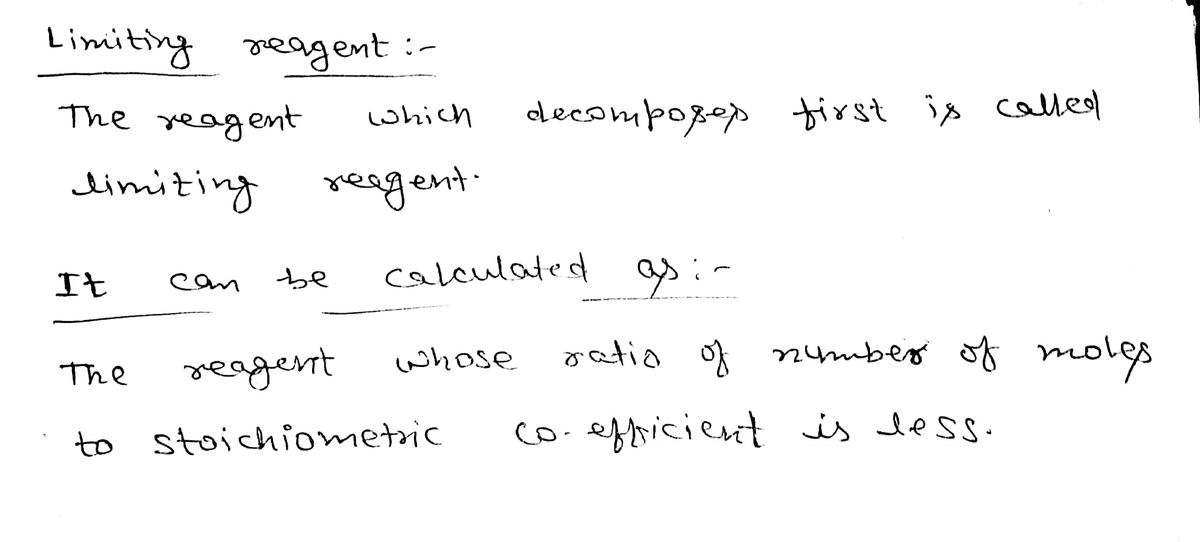 Limiting reagent :-
The reagent which decomposes first is called
limiting reagent.
It can be calculated as :-
The reagent whose ratio of number of moles
to stoichiometric co-efficient is less.